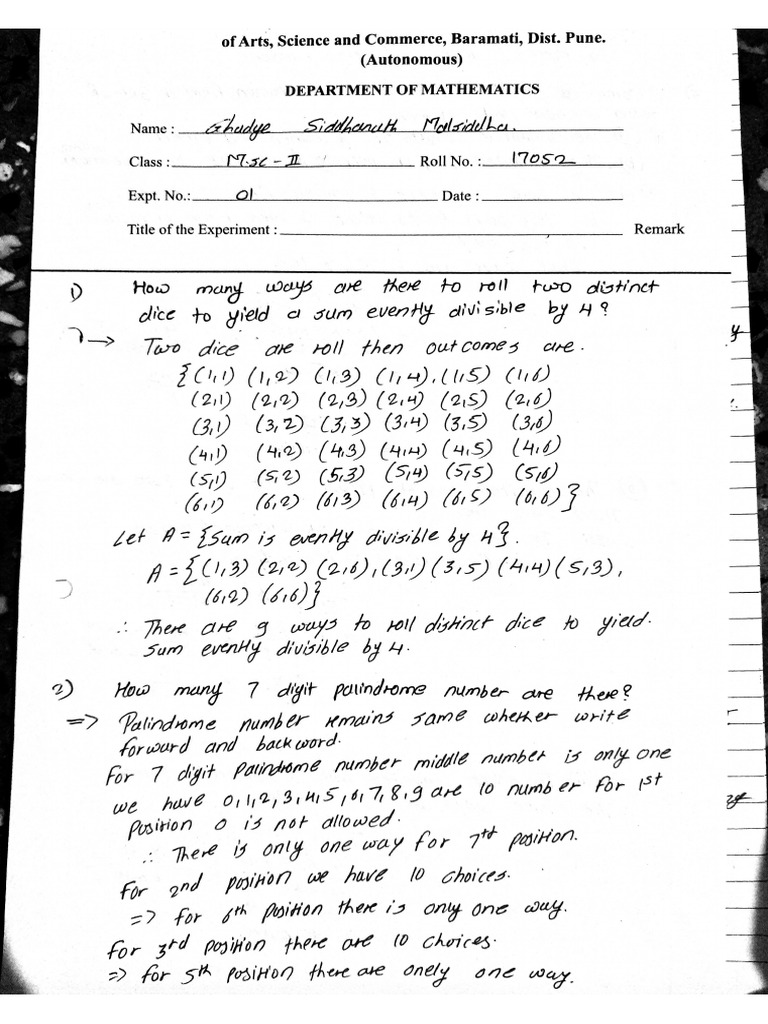 of Arts, Science and Commerce, Baramati, Dist. Pune.
(Autonomous)
DEPARTMENT OF MATHEMATICS
Name : Ghadge Siddhanath Malsiddha.
Class : M.sc - II Roll No. : 17052
Expt. No.: 01 Date :
Title of the Experiment : Remark
1) How many ways are there to roll two distinct
dice to yield a sum evently divisible by 4?
→ Two dice are roll then outcomes are.
{(1,1) (1,2) (1,3) (1,4), (1,5) (1,6)
(2,1) (2,2) (2,3) (2,4) (2,5) (2,6)
(3,1) (3,2) (3,3) (3,4) (3,5) (3,6)
(4,1) (4,2) (4,3) (4,4) (4,5) (4,6)
(5,1) (5,2) (5,3) (5,4) (5,5) (5,6)
(6,1) (6,2) (6,3) (6,4) (6,5) (6,6)}
Let A = {Sum is evently divisible by 4}.
A = {(1,3) (2,2) (2,6), (3,1) (3,5) (4,4) (5,3),
(6,2) (6,6)}
∴ There are 9 ways to roll distinct dice to yield.
sum evently divisible by 4.
2) How many 7 digit palindrome number are there?
=> Palindrome number remains same whether write
forward and backword.
For 7 digit palindrome number middle number is only one
we have 0,1,2,3,4,5,6,7,8,9 are 10 number for 1st
position 0 is not allowed.
∴ There is only one way for 7th position.
for 2nd position we have 10 choices.
=> for 6th position there is only one way.
for 3rd position there are 10 choices.
=> for 5th position there are onely one way.